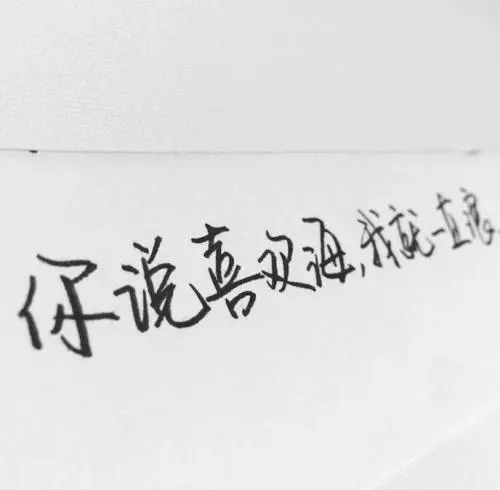 你说喜欢海，我就一直浪